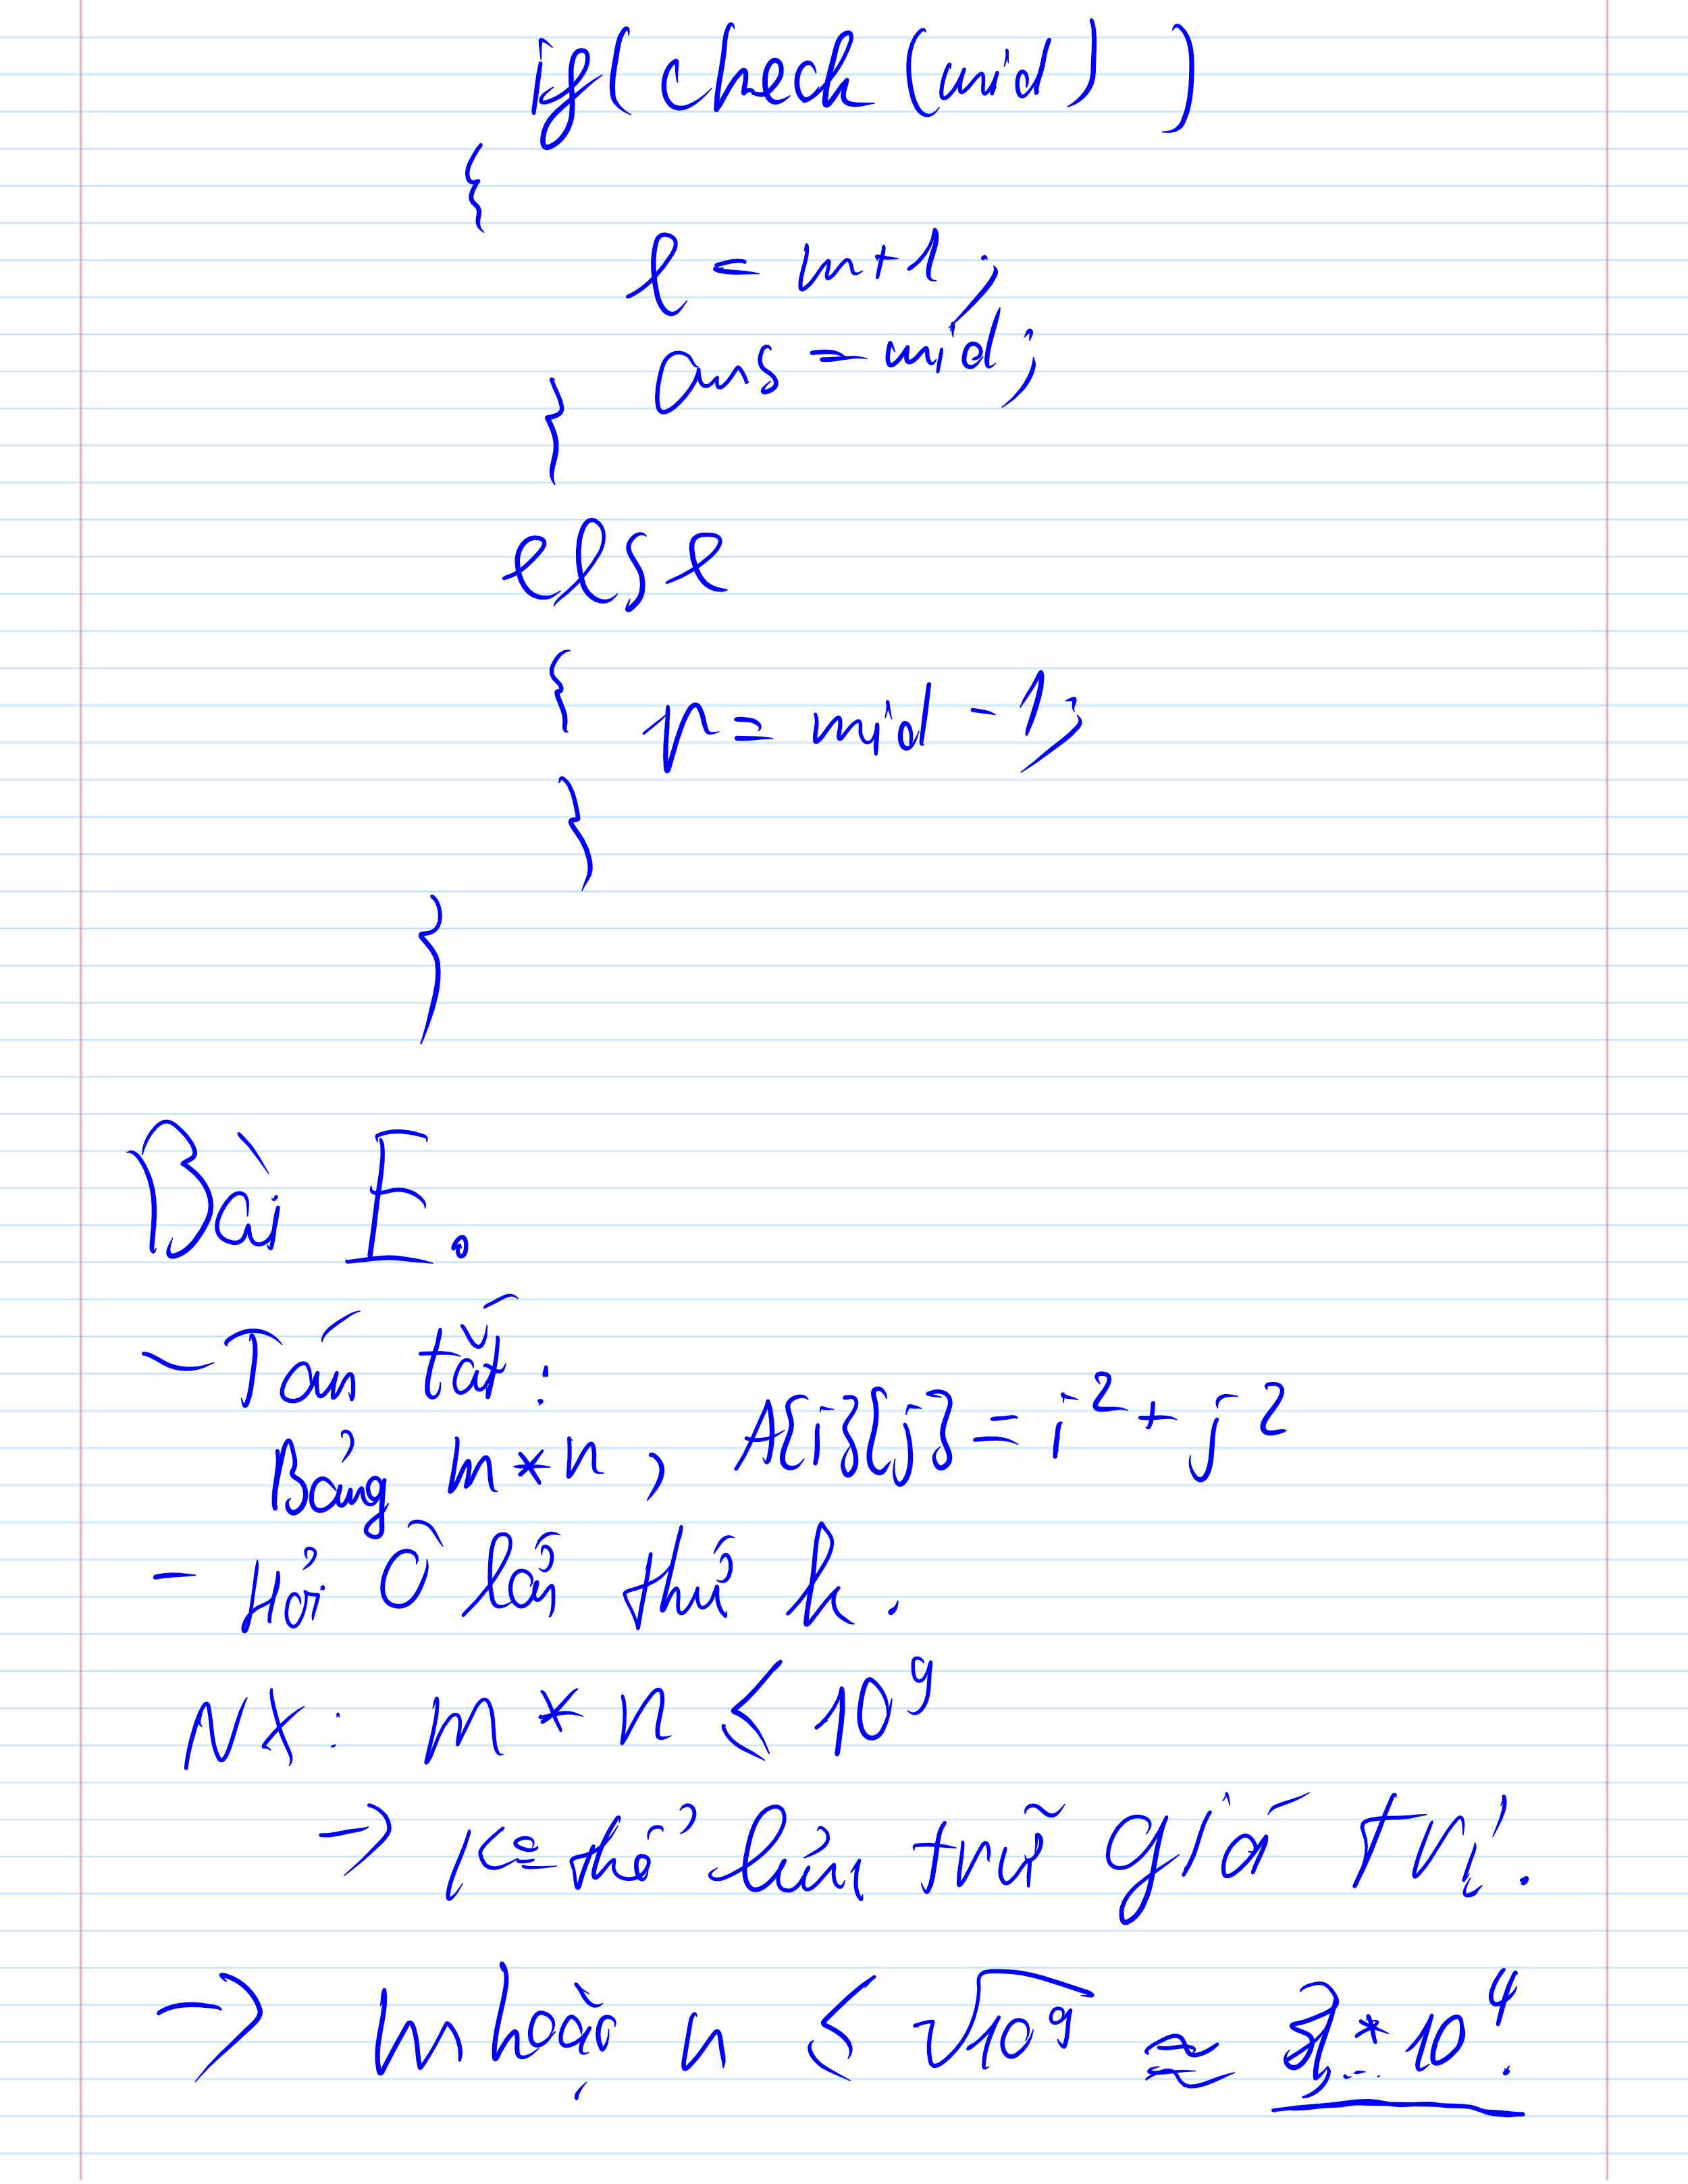 if( check (mid) )
{
l = m+1;
ans = mid;
}
else
{
r = mid - 1;
}
}
Bài E.
- Tóm tắt:
Bảng m*n, A[i][j] = i² + j²
- Hỏi Ô lớn thứ k.
NX: m * n < 10⁹
→ K thể làm thử giá trị.
→ m hoặc n < √10⁹ ≈ 3*10⁴.